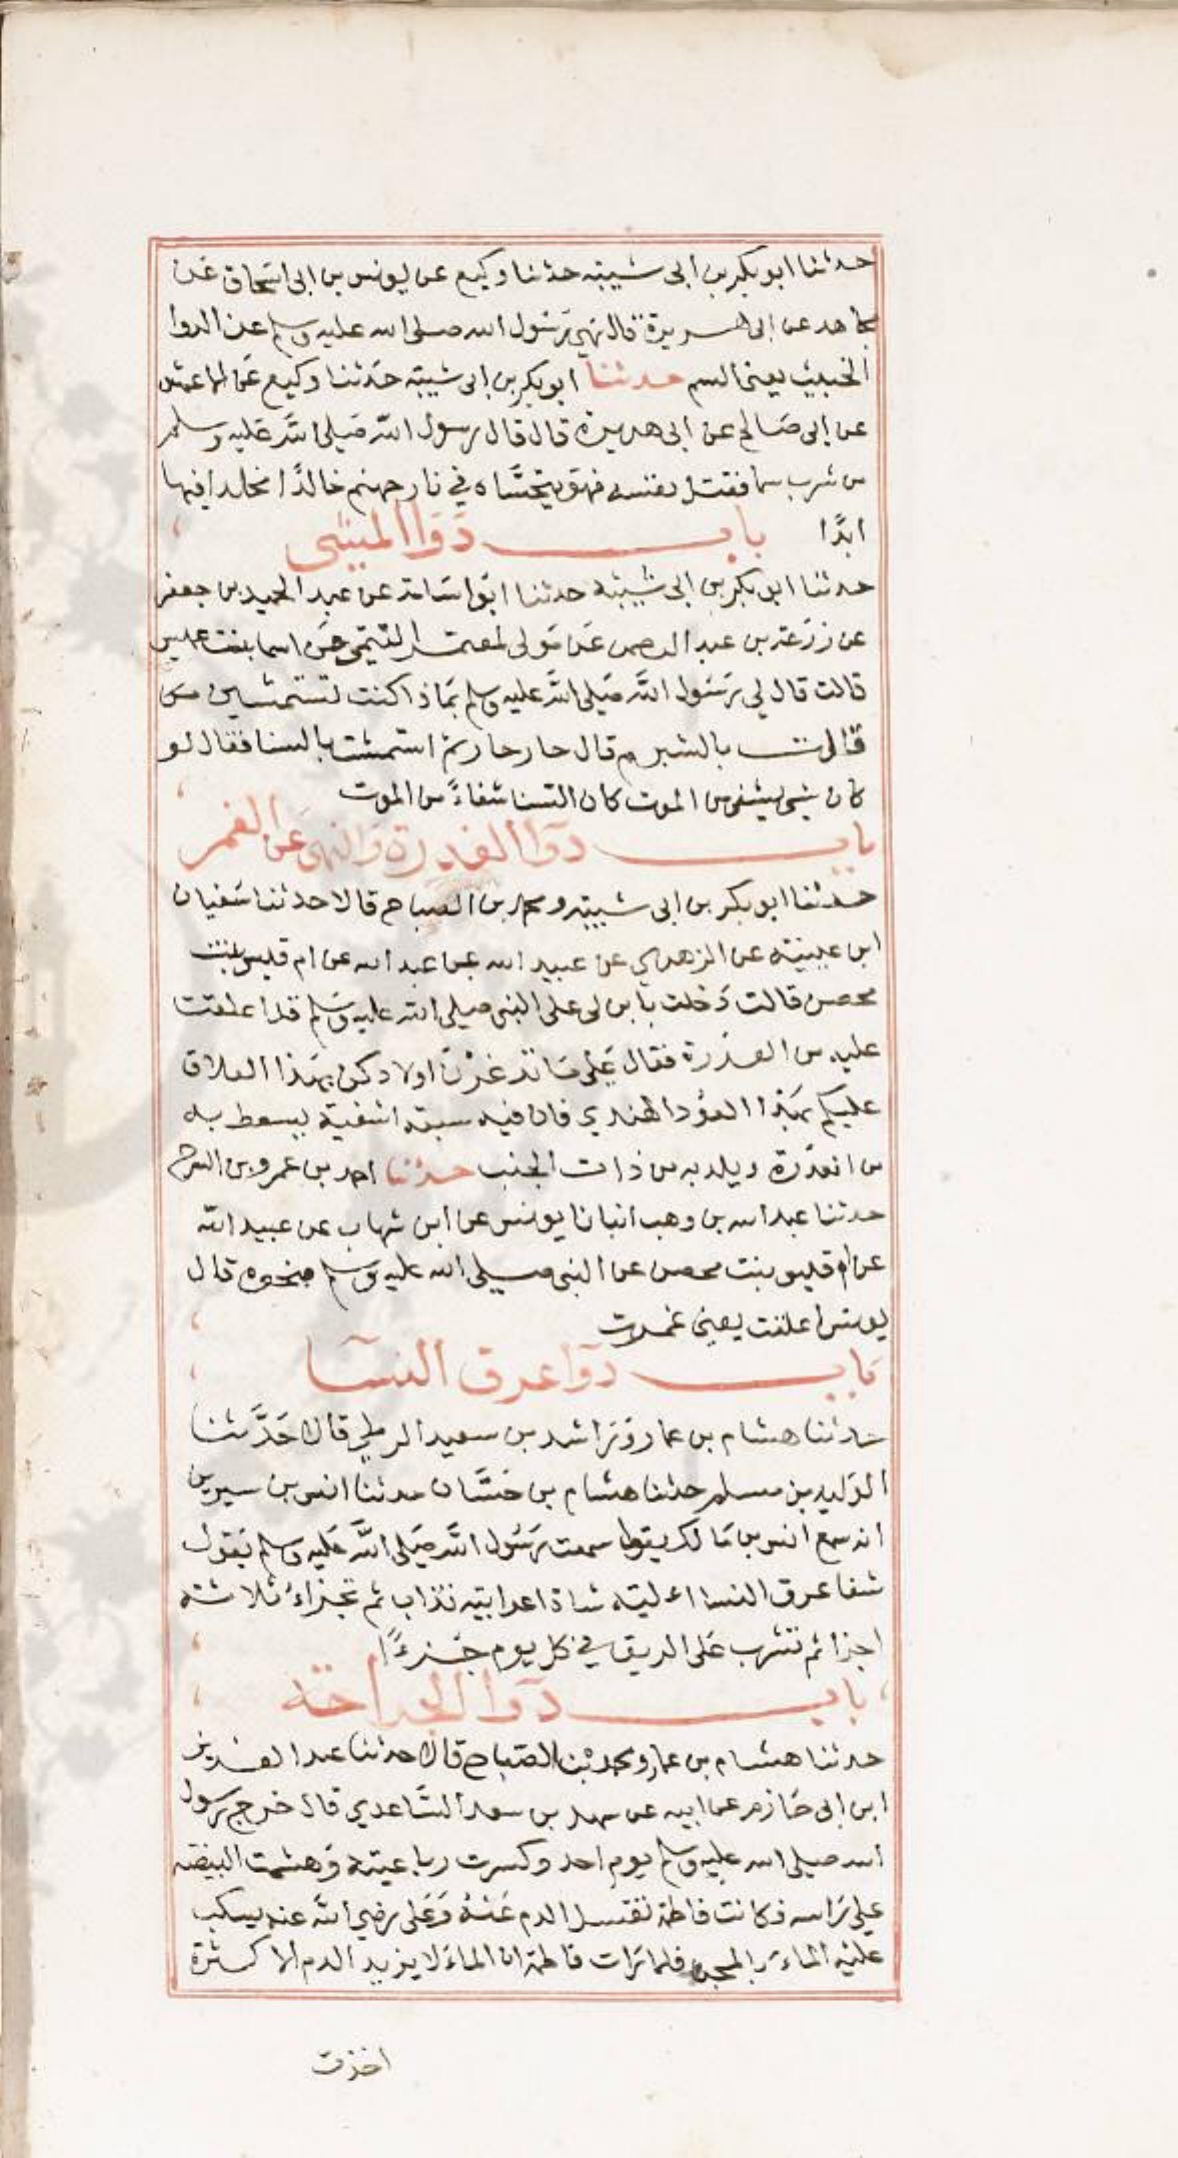 حدثنا ابو بكر بن ابى شيبة حدثنا وكيع عن يونس بن ابى اسحاق عن
مجاهد عن ابى هريرة قال نهى رسول الله صلى الله عليه وسلم عن الدوا
الخبيث يعنى السم حدثنا ابو بكر بن ابى شيبة حدثنا وكيع عن الاعمش
عن ابى صالح عن ابى هريرة قال قال رسول الله صلى الله عليه وسلم
من شرب سما فقتل نفسه فهو يتحساه في نار جهنم خالدًا مخلدا فيها
ابدًا باب دوا المشى
حدثنا ابو بكر بن ابى شيبة حدثنا ابو اسامة عن عبد الحميد بن جعفر
عن زرعة بن عبد الرحمن عن مولى لمعتمر التيمى عن اسما بنت عميس
قالت قال لي رسول الله صلى الله عليه وسلم بماذا كنت تستمشين
قالت بالشبرم قال حار حار ثم استمشت بالسنا فقال لو
كان شى يشفى من الموت كان السنا شفاءً من الموت
باب دوا العذرة والنهى عن الغمر
حدثنا ابو بكر بن ابى شيبة ومحمد بن الصباح قالا حدثنا سفيان
ابن عيينة عن الزهري عن عبيد الله عن عبد الله عن ام قيس بنت
محصن قالت دخلت بابن لى على النبى صلى الله عليه وسلم قد اعلقت
عليه من العذرة فقال على ما تدغرن اولادكن بهذا العلاق
عليكم بهذا العود الهندي فان فيه سبعة اشفية يسعط به
من العذرة ويلد به من ذات الجنب حدثنا احمد بن عمرو بن السرح
حدثنا عبد الله بن وهب انبانا يونس عن ابن شهاب عن عبيد الله
عن ام قيس بنت محصن عن النبى صلى الله عليه وسلم بنحوه قال
يونس اعلقت يعنى غمزت
باب دوا عرق النسا
حدثنا هشام بن عمار وراشد بن سعيد الرملي قالا حدثنا
الوليد بن مسلم حدثنا هشام بن حسان حدثنا انس بن سيرين
انه سمع انس بن مالك يقول سمعت رسول الله صلى الله عليه وسلم يقول
شفا عرق النسا الية شاة اعرابية تذاب ثم تجزاء ثلاثة
اجزا ثم تشرب على الريق في كل يوم جزءًا
باب دوا الجراحة
حدثنا هشام بن عمار ومحمد بن الصباح قالا حدثنا عبد العزيز
ابن ابى حازم عن ابيه عن سهل بن سعد الساعدي قال خرج رسول
الله صلى الله عليه وسلم يوم احد وكسرت رباعيته وهشمت البيضة
على راسه فكانت فاطمة تغسل الدم عنه وعلى رضي الله عنه يسكب
عليه الماء بالمجن فلما رات فاطمة ان الماء لا يزيد الدم الا كثرة
اخذت